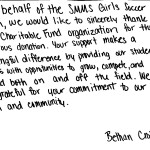 behalf of the SMMS Girls Soccer
, we would like to sincerely thank
Charitable Fund organization for the
ous donation. Your support makes a
ngful difference by providing our studen
s with opportunities to grow, compete, and
d both on and off the field. We
grateful for your commitment to our
and community.
Bethan